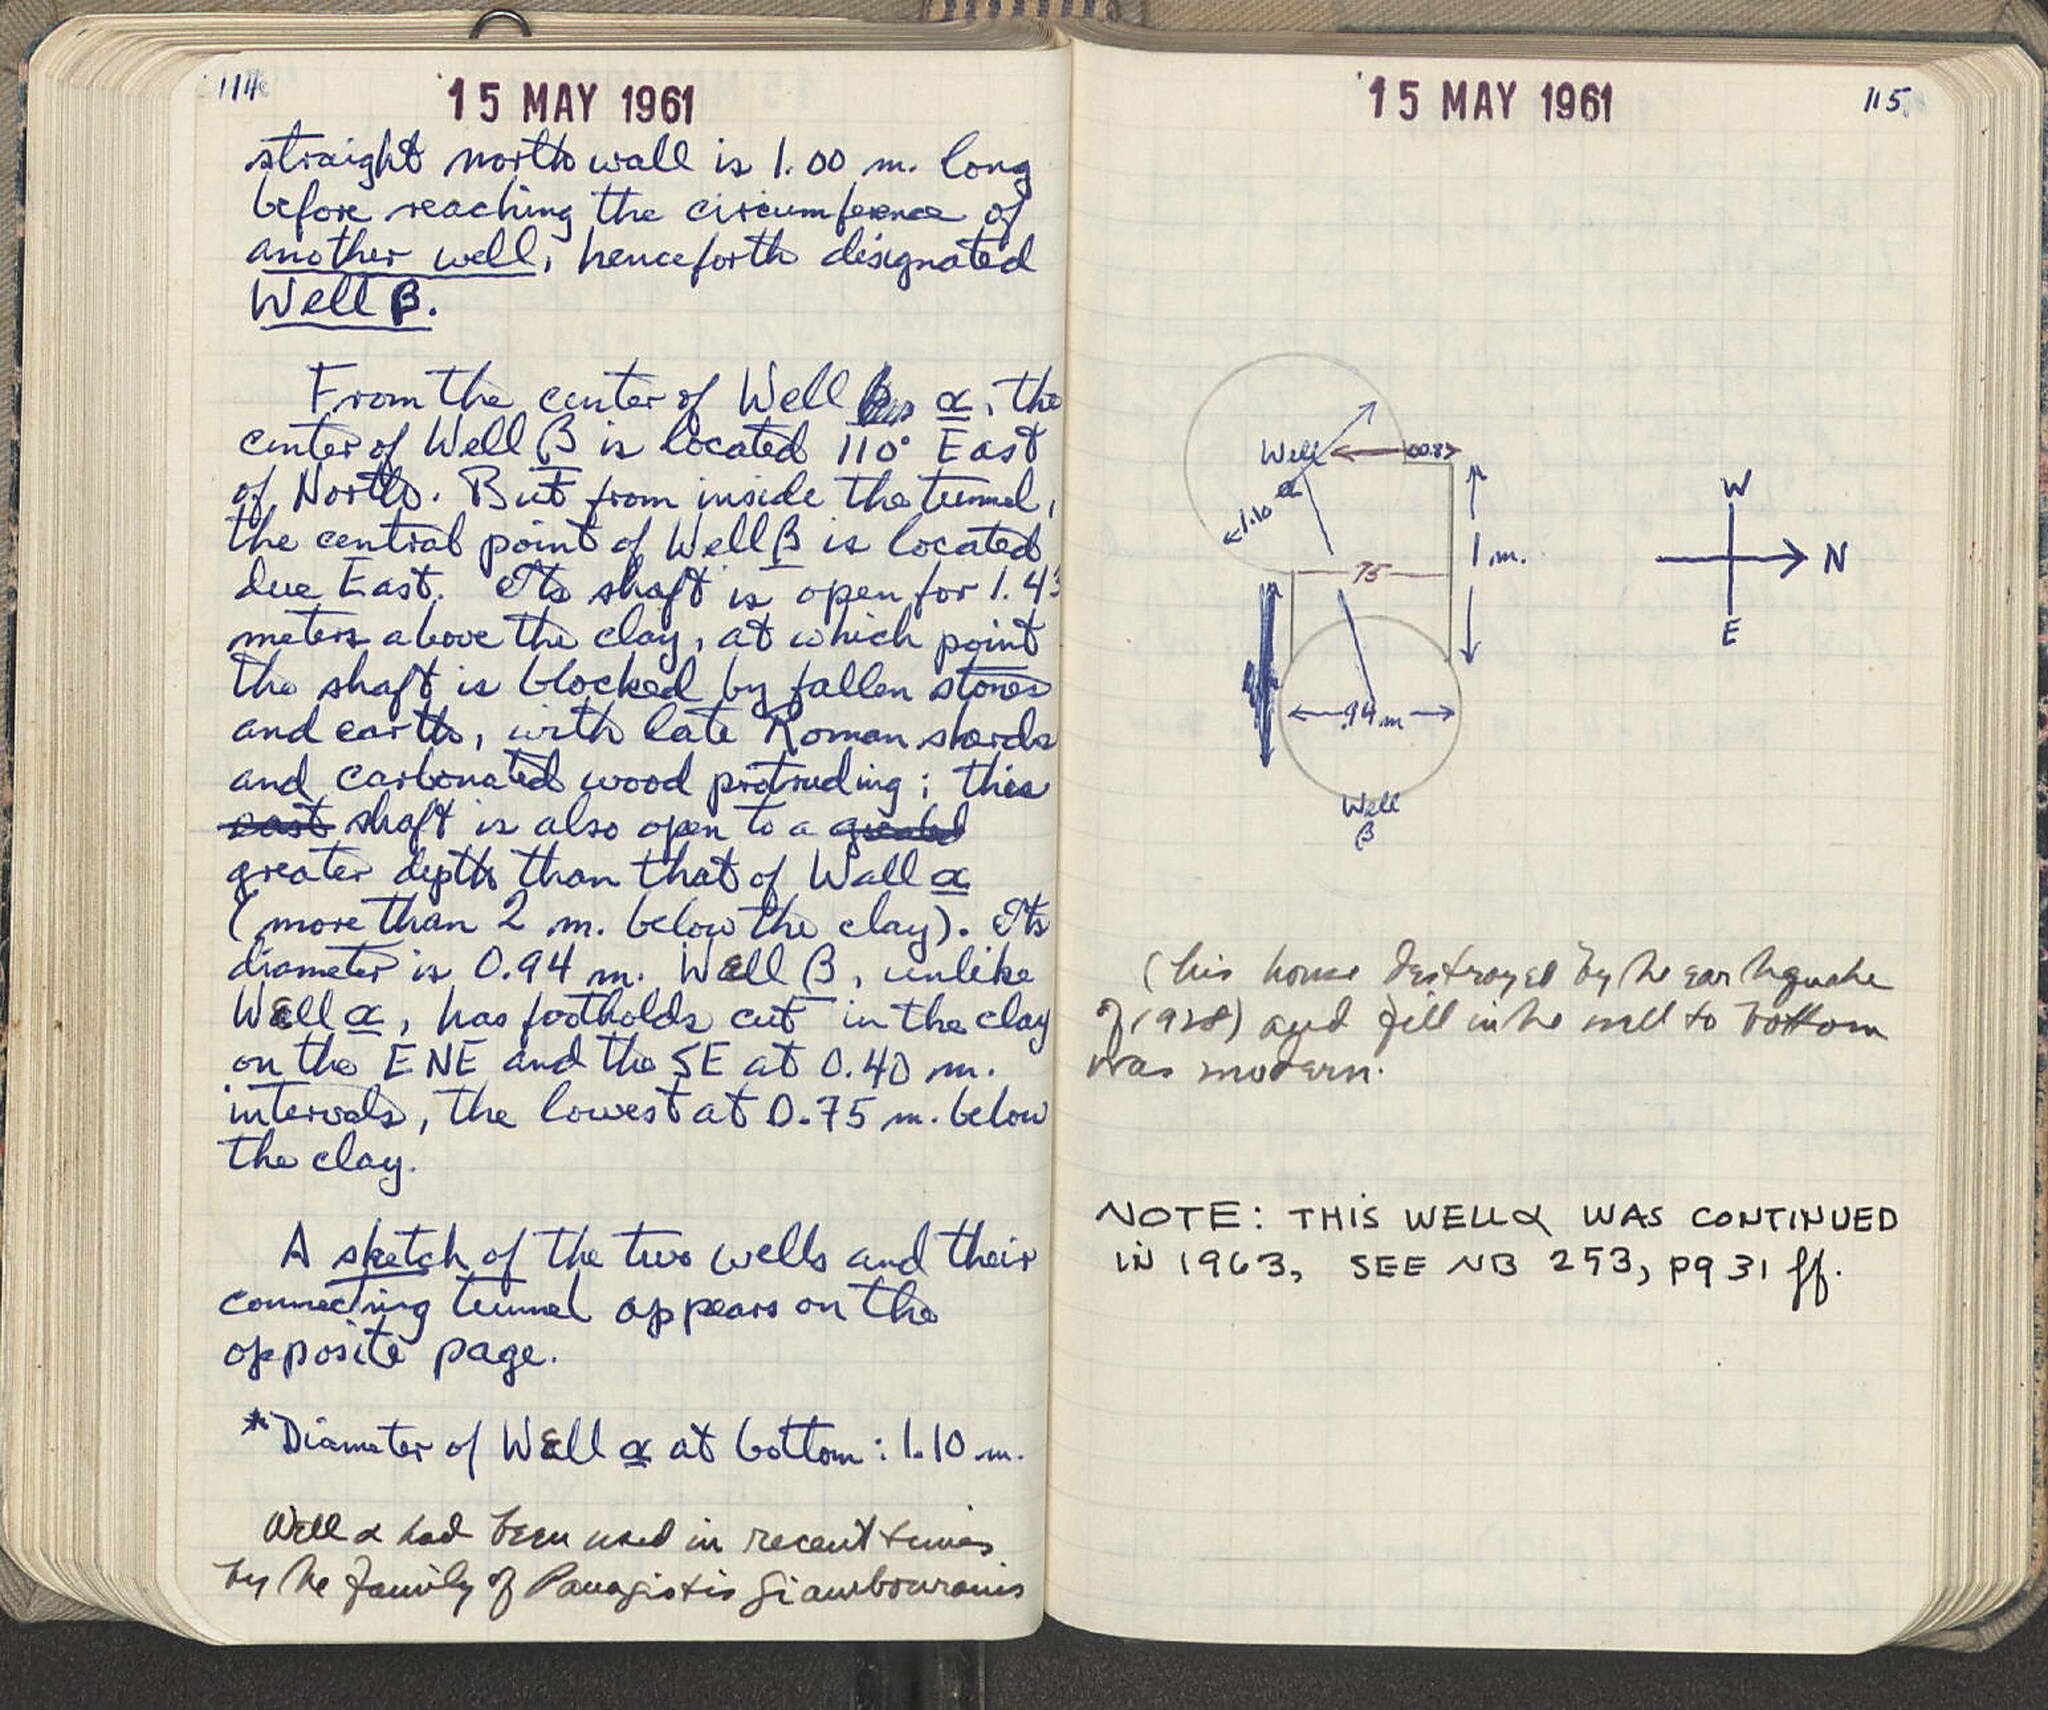 114
15 MAY 1961
straight north wall is 1.00 m. long
before reaching the circumference of
another well, henceforth designated
Well β.
From the center of Well α, the
center of Well β is located 110° East
of North. But from inside the tunnel,
the central point of Well β is located
due East. Its shaft is open for 1.43
meters above the clay, at which point
the shaft is blocked by fallen stones
and earth, with late Roman sherds
and carbonated wood protruding; this
east shaft is also open to a greated
greater depth than that of Wall α
(more than 2 m. below the clay). Its
diameter is 0.94 m. Well β, unlike
Well α, has footholds cut in the clay
on the ENE and the SE at 0.40 m.
intervals, the lowest at 0.75 m. below
the clay.
A sketch of the two wells and their
connecting tunnel appears on the
opposite page.
*Diameter of Well α at bottom: 1.10 m.
Well α had been used in recent times
by the family of Panagiotis Giambouranis
15 MAY 1961
115
Well
α
1.10
1 m.
75
.94 m
Well
β
W
N
E
(his house destroyed by the earthquake
of 1928) and fill in the well to bottom
was modern.
NOTE: THIS WELL α WAS CONTINUED
IN 1963, SEE NB 253, pg 31 ff.